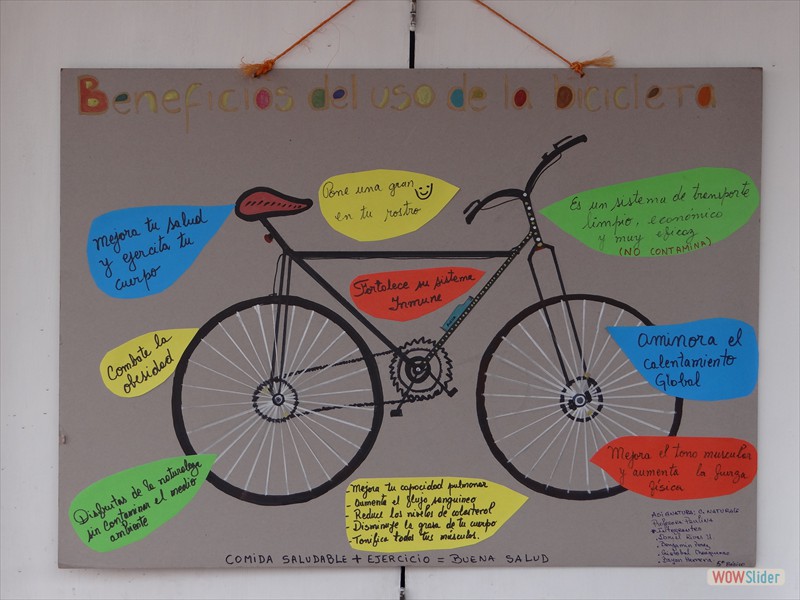 Beneficios del uso de la bicicleta
Mejora tu salud
y ejercita tu
cuerpo
Pone una gran
en tu rostro
Es un sistema de transporte
limpio, económico
y muy eficaz
(NO CONTAMINA)
Fortalece su sistema
Inmune
Combate la
obesidad
aminora el
calentamiento
Global
Mejora el tono muscular
y aumenta la fuerza
física
Disfrutas de la naturaleza
sin contaminar el medio
ambiente
- Mejora tu capacidad pulmonar
- Aumenta el flujo sanguíneo
- Reduce los niveles de colesterol
- Disminuye la grasa de tu cuerpo
- Tonifica todos tus músculos.
COMIDA SALUDABLE + EJERCICIO = BUENA SALUD
ASIGNATURA: C. NATURALES
Profesora Paulina
Integrantes
5° Básico
WOWSlider